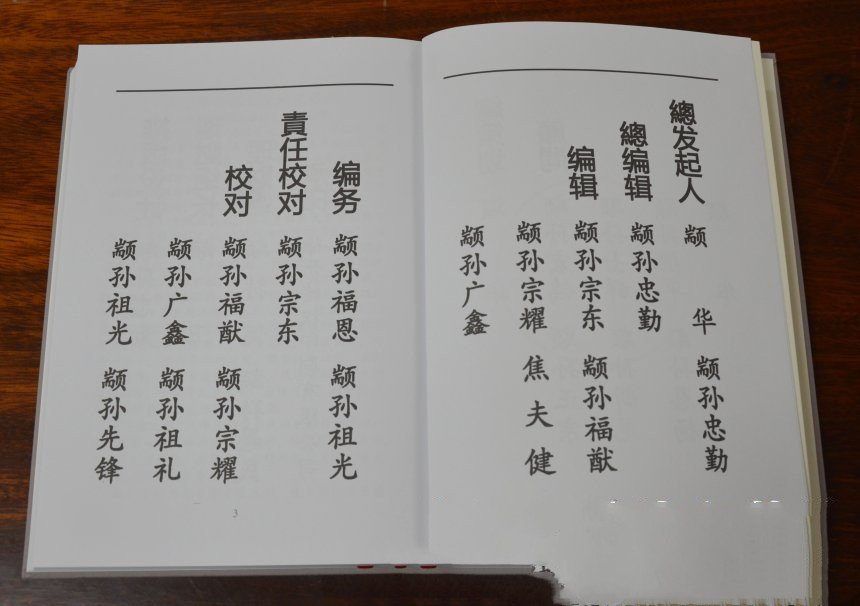 總发起人 颛 华 颛孙忠勤
總编辑 颛孙忠勤
编辑 颛孙宗东 颛孙福猷
颛孙宗耀 焦夫健
颛孙广鑫
编务 颛孙福恩 颛孙祖光
責任校对 颛孙宗东
校对 颛孙福猷 颛孙宗耀
颛孙广鑫 颛孙祖礼
颛孙祖光 颛孙先锋
3